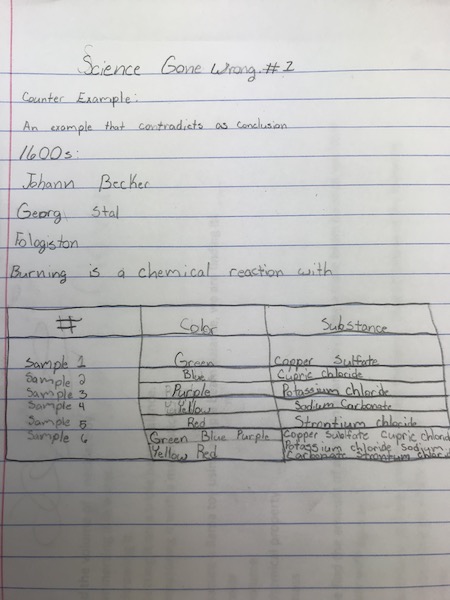 Science Gone Wrong #1
Counter Example:
An example that contradicts as conclusion
1600s:
Johann Becker
Georg Stal
Fologiston
Burning is a chemical reaction with
# Color Substance
Sample 1 Green Copper Sulfate
Sample 2 Blue Cupric chloride
Sample 3 Purple Potassium chloride
Sample 4 Yellow Sodium Carbonate
Sample 5 Red Strontium chloride
Sample 6 Green Blue Purple Copper Sulbfate Cupric chlorid
Yellow Red Potassium chloride Sodium
Carbonate Strontum chlorid